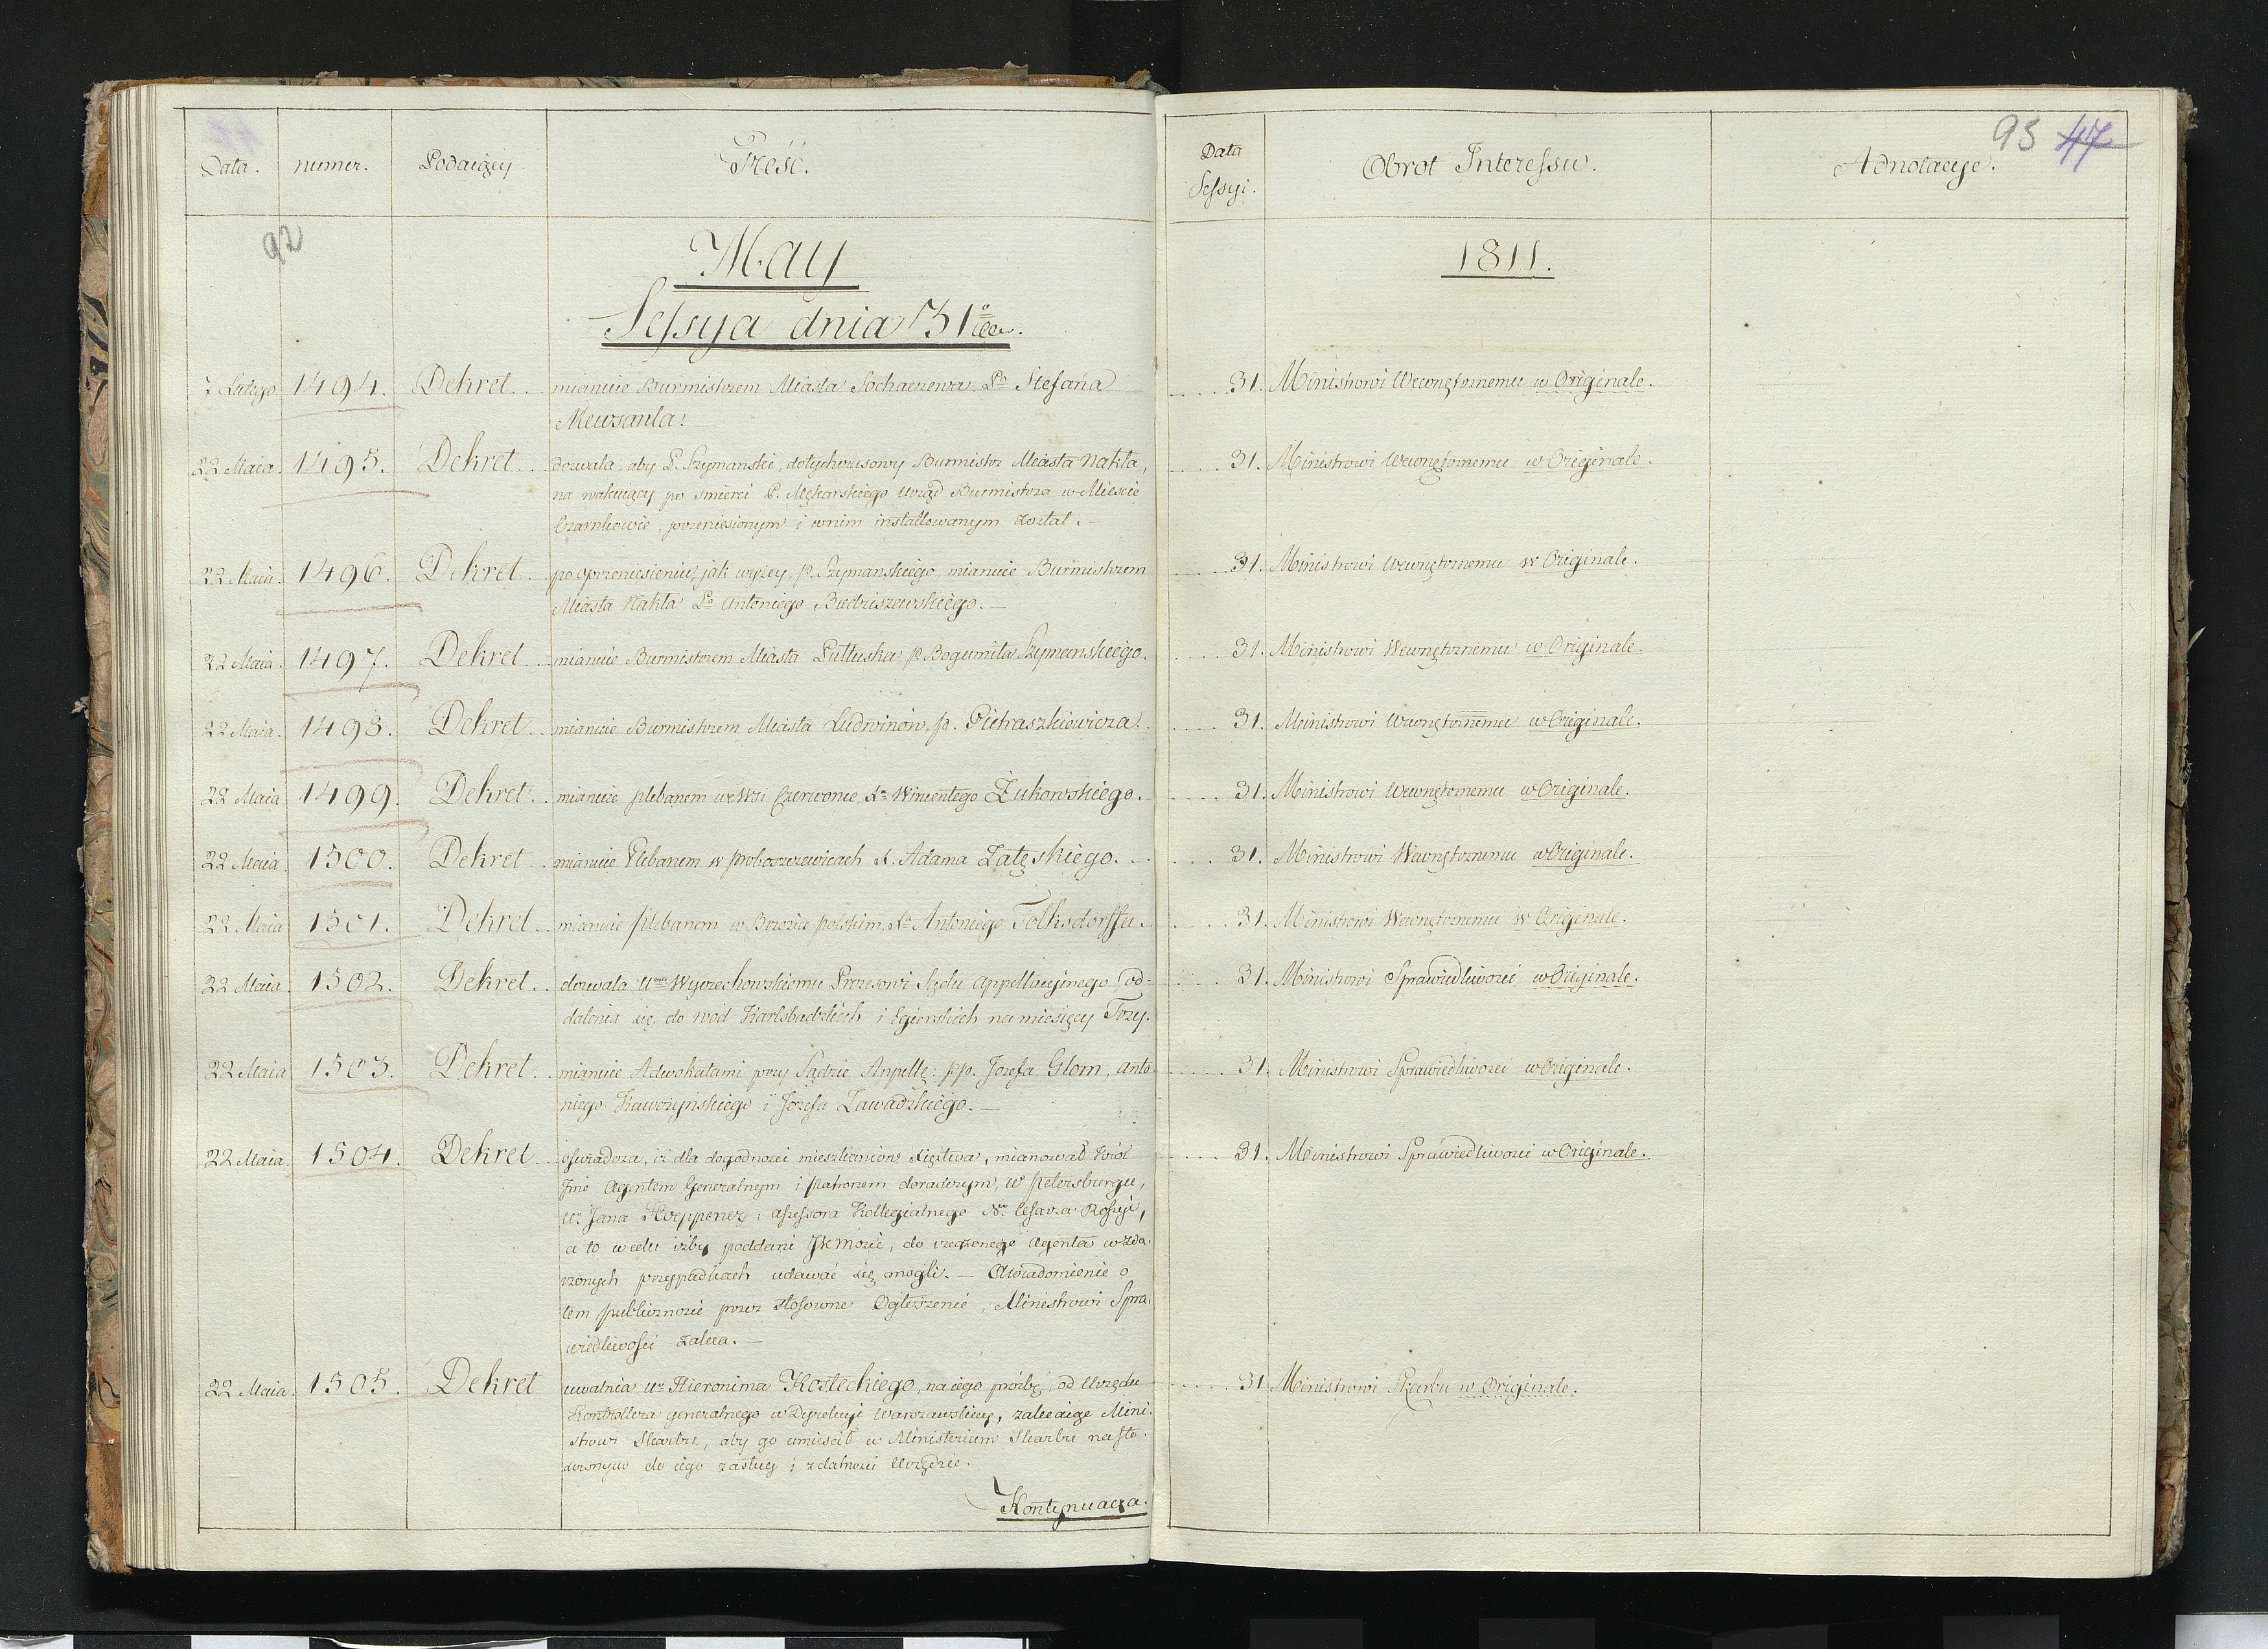 Data. numer. Podaiący. Treść.
92
May
Sessya dnia 31go
7 Lutego 1494. Dekret. mianuie Burmistrzem Miasta Sochaczewa, Pa Stefana
22 Maia. 1495. Dekret. dozwala, aby P. Szymanski, dotychczasowy Burmistrz Miasta Nakła,
na wakuiący po smierci P. Mękarskiego Urząd Burmistrza w Mieście
Czarnkowie, przeniesionym i w nim installowanym został. —
22 Maia. 1496. Dekret. po przeniesieniu, jak wyżey, P. Szymanskiego, mianuie Burmistrzem
Miasta Nakła Pa Antoniego Budziszewskiego. —
22 Maia. 1497. Dekret mianuie Burmistrzem Miasta Pułtuska P. Bogumiła Szymanskiego.
22 Maia. 1498. Dekret mianuie Burmistrzem Miasta Ludwinów, P. Pietraszkiewicza.
22 Maia 1499. Dekret. mianuie plebanem we Wsi Czerwonce, Xa Wincentego Żukowskiego.
22 Maia 1500. Dekret mianuie Plebanem w Proboszczewicach X. Adama Załęskiego.
22 Maia 1501. Dekret mianuie plebanem w Brzozie polskim, Xa Antoniego Tolksdorffa.
22 Maia 1502. Dekret. dozwala Umu Wyczechowskiemu Prezesowi Sądu Appellacyinego od-
dalenia się do wod Karlsbadzkich i Egierskich na miesięcy Trzy.
22 Maia 1503. Dekret. mianuie Adwokatami przy Sądzie Appellc: pp. Jozefa Glom, Anto
niego Kawczyńskiego i Jozefa Zawadzkiego. —
22 Maia. 1504. Dekret oswiadcza, iż dla dogodności mieszkańców Xięstwa, mianował Król
Jmć Agentem Generalnym i Patronem doradczym, w Petersburgu,
Ur Jana Hoeppener, assessora Kollegialnego Nr. Cesarza Rossyi,
a to w celu iżby poddani JKMości, do rzeczonego Agenta w zda-
rzonych przypadkach udawać się mogli. — Uwiadomienie o
tem publiczności przez stosowne Ogłoszenie, Ministrowi Spra-
wiedliwości zaleca. —
22 Maia. 1505. Dekret uwalnia Ur Hieronima Kosteckiego, na iego prośbę, od Urzędu
Kontrollera generalnego w Dyrekcyi Warszawskiey, zalecaiąc Mini-
strowi Skarbu, aby go umieścił w Ministerium Skarbu na sto-
sownym do iego zasług i zdatności Urzędzie.
Kontynuacya.
Data Sessyi. Obrot Interessu. Adnotacye.
93 47
1811.
31. Ministrowi Wewnętrznemu w Originale.
31. Ministrowi Wewnętrznemu w Originale.
31. Ministrowi Wewnętrznemu w Originale.
31. Ministrowi Wewnętrznemu w Originale.
31. Ministrowi Wewnętrznemu w Originale.
31. Ministrowi Wewnętrznemu w Originale.
31. Ministrowi Wewnętrznemu w Originale.
31. Ministrowi Wewnętrznemu w Originale.
31. Ministrowi Sprawiedliwości w Originale.
31. Ministrowi Sprawiedliwości w Originale.
31. Ministrowi Sprawiedliwości w Originale.
31 Ministrowi Skarbu w Originale.